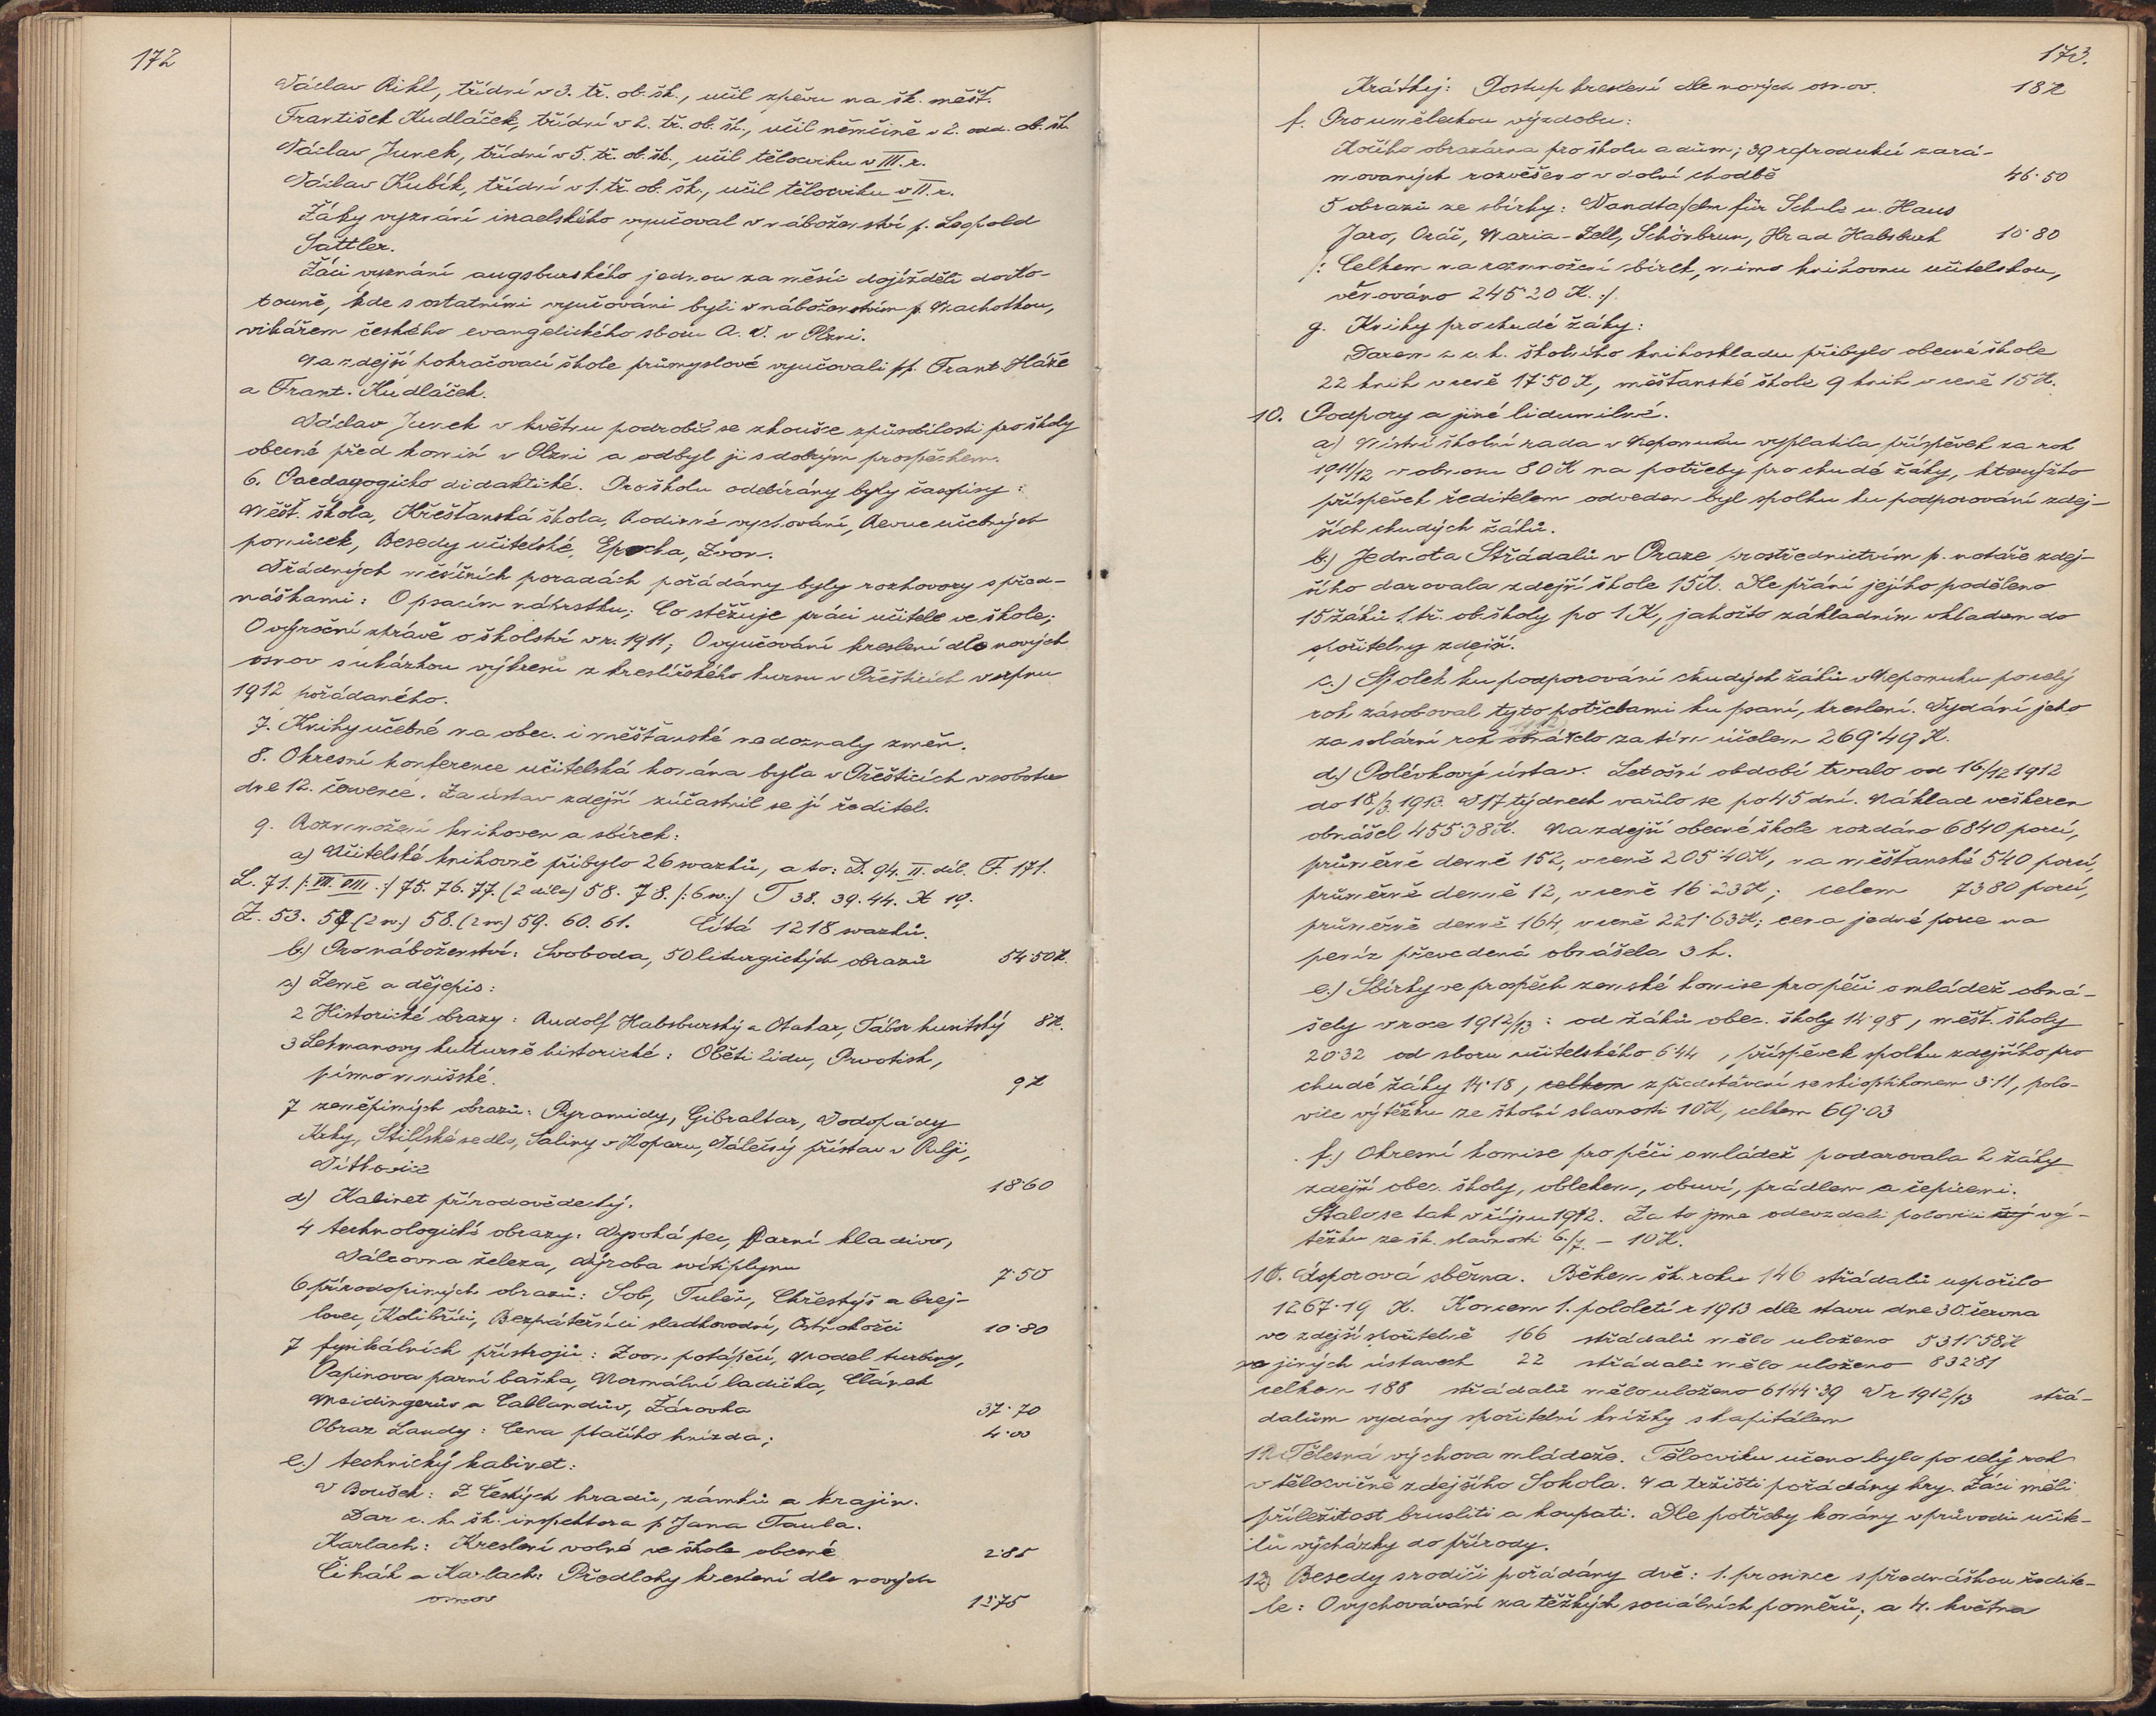 172
Václav Rikl, třídní v 3. tř. ob. šk., učil zpěvu na šk. měšť.
František Kudláček, třídní v 2. tř. ob. šk., učil němčině v 2. odd. ob. šk.
Václav Junek, třídní v 5. tř. ob. šk., učil tělocviku v III. r.
Václav Kubík, třídní v 1. tř. ob. šk., učil tělocviku v II. r.
Žáky vyznání israelského vyučoval v náboženství p. Leopold
Sattler.
Žáci vyznání augsburského jednou za měsíc dojížděli do Ko-
touně, kde s ostatními vyučováni byli v náboženství p. Machotkou,
vikářem českého evangelického sboru A. V. v Plzni.
Na zdejší pokračovací škole průmyslové vyučovali pp. Frant. Háže
a Frant. Kudláček.
Václav Junek v květnu podrobil se zkoušce způsobilosti pro školy
obecné před komisí v Plzni a odbyl ji s dobrým prospěchem.
6. Paedagogicko didaktické. Pro školu odebírány byly časopisy:
Měšť. škola, Křesťanská škola, Rodinné vychování, Revue učebných
pomůcek, Besedy učitelské, Epocha, Zvon.
V řádných měsíčních poradách pořádány byly rozhovory s před-
náškami: O psacím náčrstku; Co stěžuje práci učitele ve škole;
O výroční zprávě o školství v r. 1911; O vyučování kreslení dle nových
osnov s ukázkou výkresů z kreslířského kursu v Přešticích v srpnu
1912 pořádaného.
7. Knihy učebné na obec. i měšťanské nedoznaly změn.
8. Okresní konference učitelská konána byla v Přešticích v sobotu
dne 12. července. Za ústav zdejší zúčastnil se jí ředitel.
9. Rozmnožení knihoven a sbírek:
a) Učitelské knihovně přibylo 26 svazků, a to: D. 94. II. díl. F. 171.
L. 71. /: VII. VIII :/ 75. 76. 77. (2 díly) 58. 78. /: 6 sv. :/ T 38. 39. 44. X 19.
Z. 53. 57 (2 sv.) 58. (2 sv.) 59. 60. 61. Čítá 1218 svazků.
b.) Pro náboženství: Svoboda, 50 liturgických obrazů 54·50 K.
c) Země a dějepis:
2 Historické obrazy: Rudolf Habsburský a Otakar, Tábor husitský 8 K.
3 Lehmanovy kulturně historické: Oběti lidu, Prvotisk,
písmo mnišské. 9 K
7 zeměpisných obrazů: Pyramidy, Gibraltar, Vodopády
Krky, Stilfské sedlo, Saliny v Koparu, Válečný přístav v Pulji,
Vítkovice 18·60
d) Kabinet přírodovědecký.
4 technologické obrazy: Vysoká pec, Parní kladivo,
Válcovna železa, Výroba svítiplynu 7·50
6 přírodopisných obrazů: Sob, Tuleň, Chřestýš a brej-
lovec, Kolibříci, Bezpáteřníci sladkovodní, Ostnokožci 10·80
7 fysikálních přístrojů: Zvon potápěčí, Model turbiny,
Papinova parní baňka, Normální ladička, Článek
Meidingerův a Callandův, Žárovka 37·70
Obraz Landy: Cena ptačího hnízda; 4·00
e.) technický kabinet:
V Boušek: Z Českých hradů, zámků a krajin.
Dar c. k. šk. inspektora p Jana Taula.
Karlach: Kreslení volné ve škole obecné 2·85
Čihák a Karlach: Předlohy kreslení dle nových
osnov 13·75
173.
Krátký: Postup kreslení dle nových osnov. 18 K
f. Pro uměleckou výzdobu:
Kočího obrazárna pro školu a dům; 39 reprodukcí zará-
movaných rozvěšeno v dolní chodbě 46·50
5 obrazů ze sbírky: Wandtafeln für Schule u. Haus
Jaro, Oráč, Maria-Zell, Schönbrun, Hrad Habsburk 10·80
/: Celkem na rozmnožení sbírek, mimo knihovnu učitelskou,
věnováno 245·20 K. :/
g. Knihy pro chudé žáky:
Darem z c. k. školního knihoskladu přibylo obecné škole
22 knih v ceně 17·50 K, měšťanské škole 9 knih v ceně 15 K.
10. Podpory a jiné lidumilné.
a) Místní školní rada v Nepomuku vyplatila příspěvek za rok
1911/12 v obnosu 80 K na potřeby pro chudé žáky, kterýžto
příspěvek ředitelem odveden byl spolku ku podporování zdej-
ších chudých žáků.
b.) Jednota Střádalů v Praze prostřednictvím p. notáře zdej-
šího darovala zdejší škole 15 K. Dle přání jejího poděleno
15 žáků 1. tř. ob. školy po 1 K, jakožto základním vkladem do
spořitelny zdejší.
c.) Spolek ku podporování chudých žáků v Nepomuku po celý
rok zásoboval tyto potřebami ku psaní, kreslení. Vydání jeho
za solární rok obnášelo za tím účelem 269·49 K.
d.) Polévkový ústav. Letošní období trvalo od 16./12 1912
do 18/3. 1913. V 17 týdnech vařilo se po 45 dní. Náklad veškeren
obnášel 455·38 K. Na zdejší obecné škole rozdáno 6840 porcí,
průměrně denně 152, v ceně 205·40 K, na měšťanské 540 porcí,
průměrně denně 12, v ceně 16·23 K; celem 7380 porcí,
průměrně denně 164, v ceně 221·63 K; cena jedné porce na
peníz převedená obnášela 3 h.
e.) Sbírky ve prospěch zemské komise pro péči o mládež obná-
šely v roce 1912/13: od žáků obec. školy 14·98, měšť. školy
20·32 od sboru učitelského 6·44, příspěvek spolku zdejšího pro
chudé žáky 14·18, celkem z představení se skioptikonem 3·11, polo-
vice výtěžku ze školní slavnosti 10 K, celkem 69·03
f.) Okresní komise pro péči o mládež podarovala 2 žáky
zdejší obec. školy, oblekem, obuví, prádlem a čepicemi.
Stalo se tak v říjnu 1912. Za to jsme odevzdali polovici vý-
těžku ze šk. slavnosti 6./7. – 10 K.
11. Úsporová sběrna. Během šk. roku 146 střádalů uspořilo
1267·19 K. Koncem 1. pololetí r 1913 dle stavu dne 30. června
ve zdejší spořitelně 166 střádalů mělo uloženo 5311·58 K
ve jiných ústavech 22 střádalů mělo uloženo 832·81
celkem 188 střádalů mělo uloženo 6144·39 V r 1912/13 střá-
dalům vydány spořitelní knížky s kapitálem
12. Tělesná výchova mládeže. Tělocviku učeno bylo po celý rok
v tělocvičně zdejšího Sokola. Na tržišti pořádány hry. Žáci měli
příležitost brusliti a koupati. Dle potřeby konány v průvodu učite-
lů vycházky do přírody.
13) Besedy s rodiči pořádány dvě: 1. prosince s přednáškou ředite-
le: O vychovávání za těžkých sociálních poměrů; a 4. května